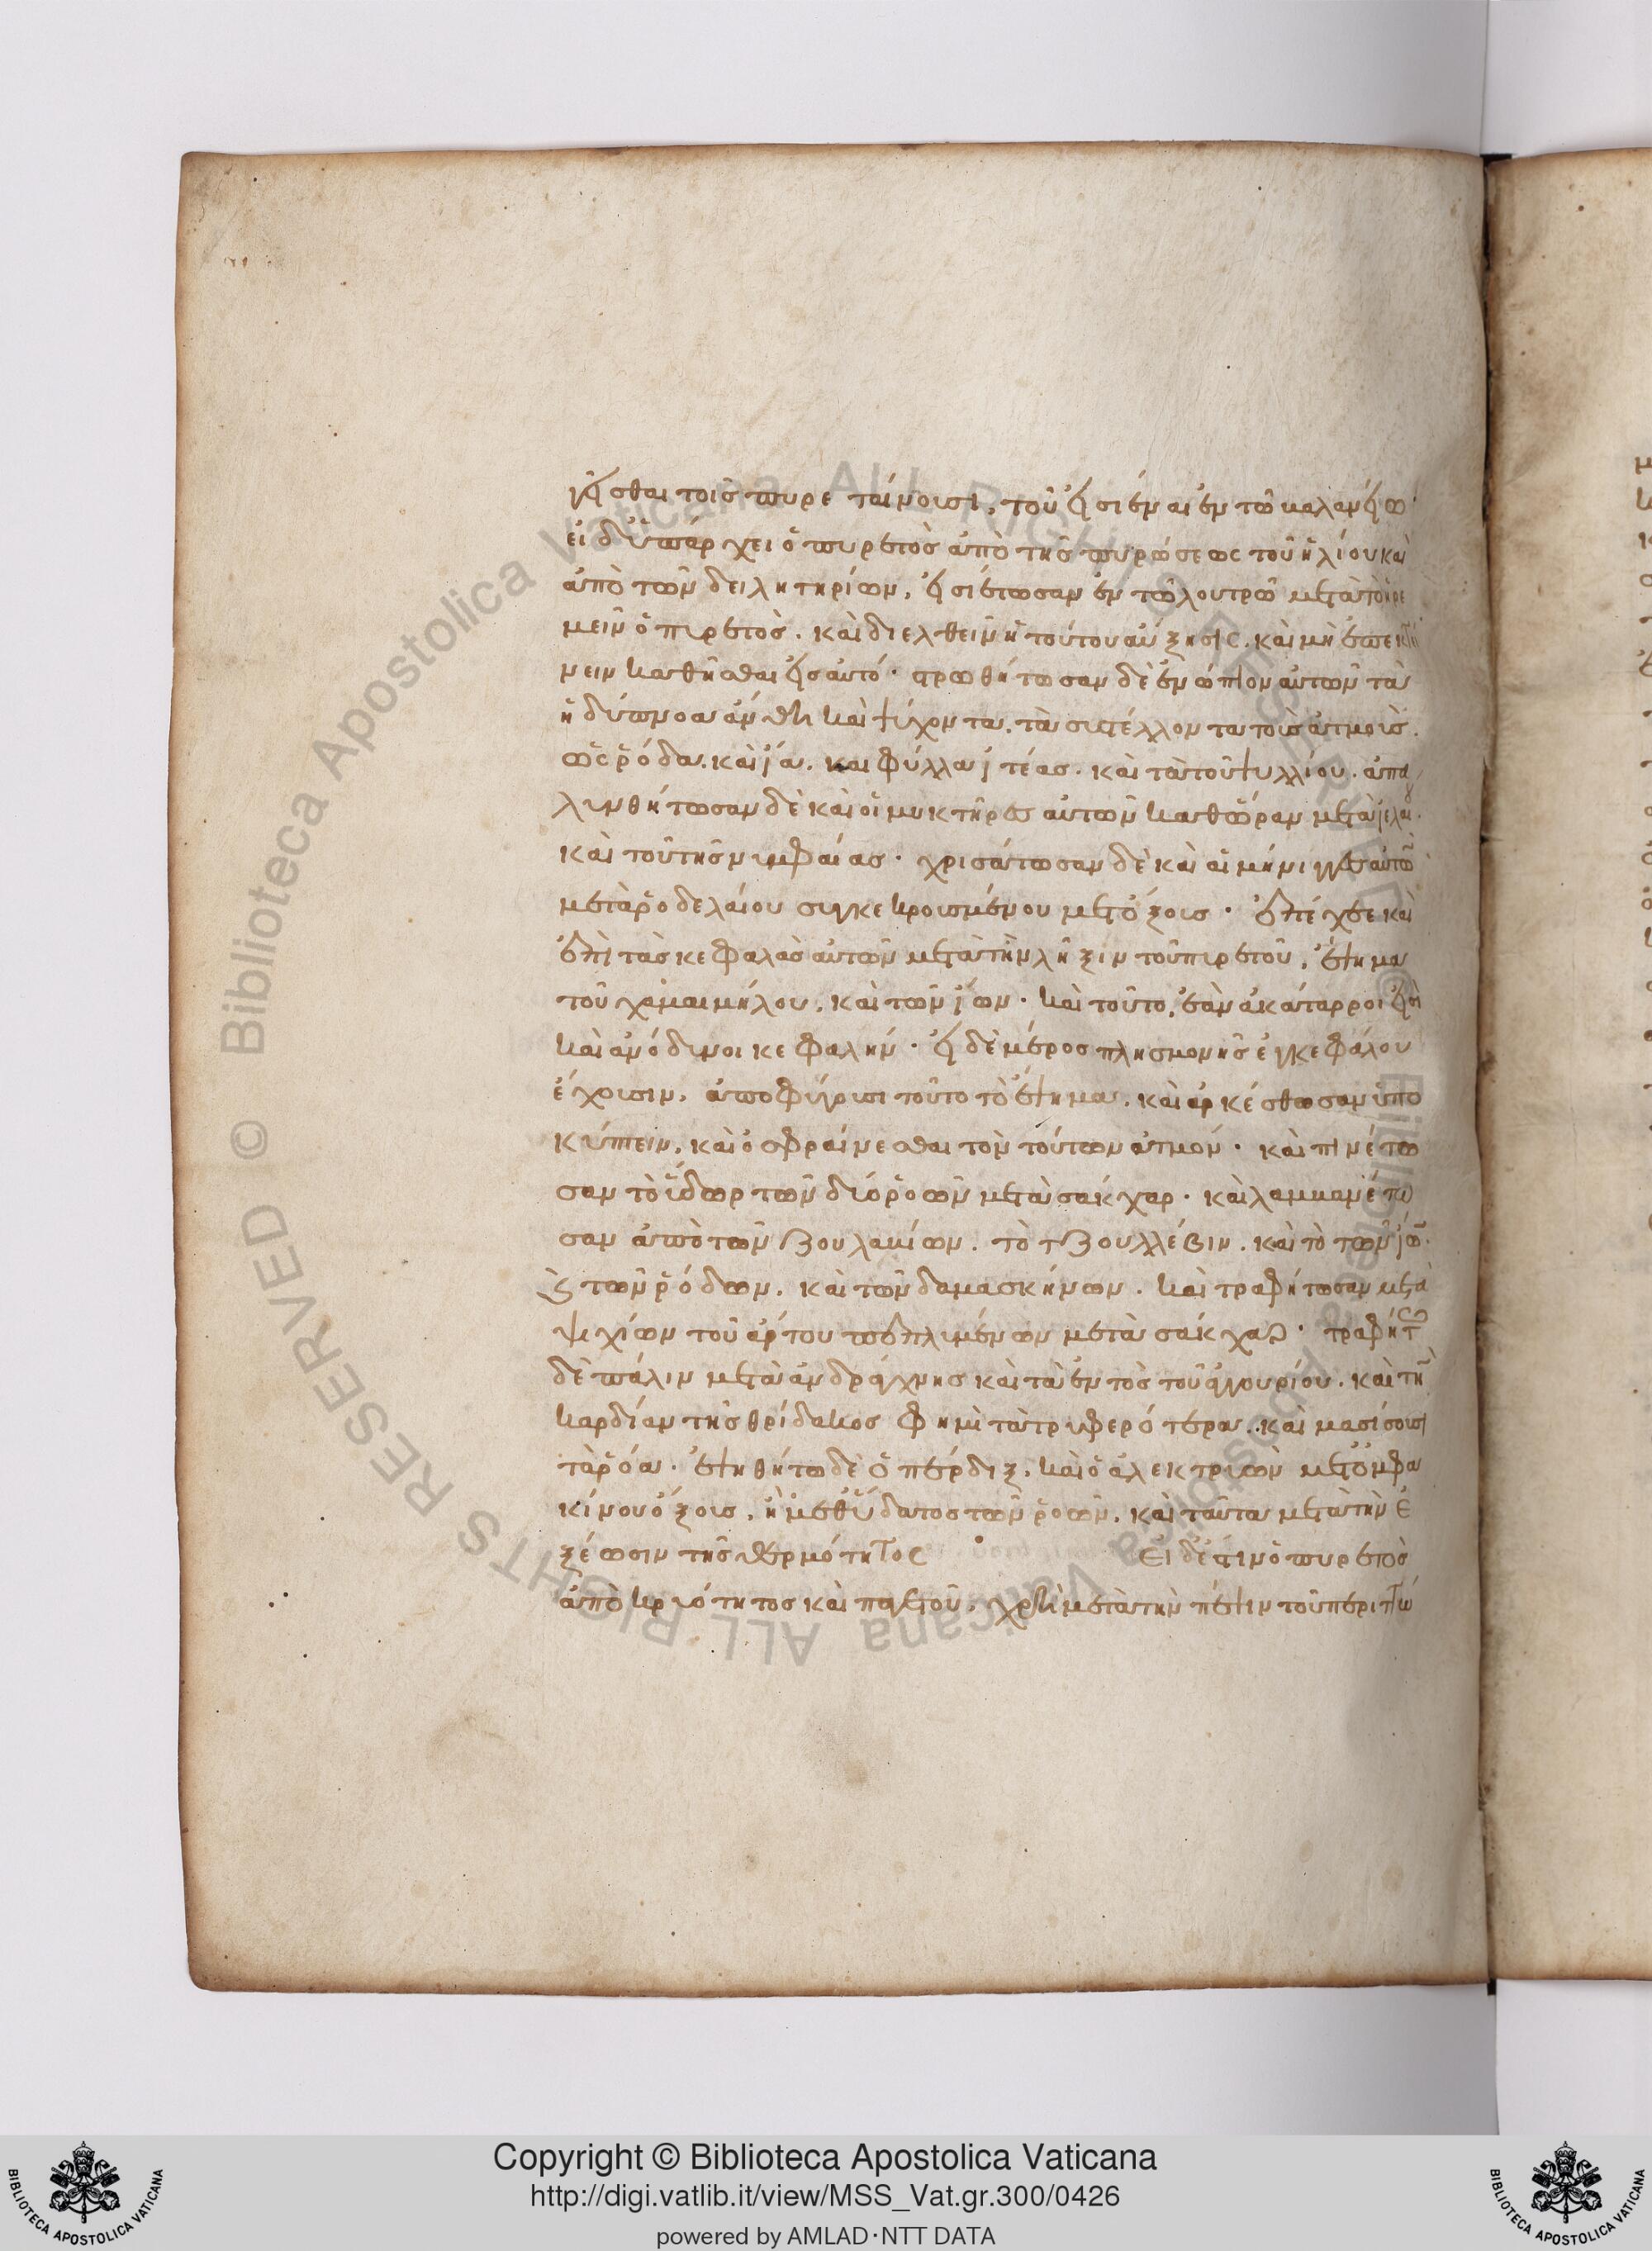 γεσθαι τοῖς πυρεταίνουσι, τοῦ εἰσιέναι ἐν τῷ καλανείῳ·
εἰ δ' ὑπάρχει ὁ πυρετὸς ἀπὸ τῆς πυρώσεως τοῦ ἡλίου καὶ
ἀπὸ τῶν δειλητηρίων, εἰσίτωσαν ἐν τῷ λουτρῷ μετὰ τὸ ἠρε
μεῖν ὁ πυρετὸς. καὶ διελθεῖν ἡ τούτου αὔξησις. καὶ μὴ ἐπεκτεί
νειν καθῆσθαι εἰς αὐτό· στρωθήτωσαν δὲ ἐνώπιον αὐτῶν τὰ
ἡδύπνοα ἄνθη καὶ ψύχοντα. τὰ συστέλλοντα τοὺς ἀτμοὺς.
ὡς ῥόδα. καὶ ἴα. καὶ φύλλα ἰτέας. καὶ τὰ τοῦ ψυλλίου. ἀπα
λυνθήτωσαν δὲ καὶ οἱ μυκτῆρες αὐτῶν καθ' ὥραν μετὰ ἰελαίου.
καὶ τοῦ τῆς νυμφαίας· χρισάτωσαν δὲ καὶ αἱ μήνιγγες αὐτῶν
μετὰ ῥοδελαίου συγκεκροισμένου μετ' ὄξους· ἐπίχεε καὶ
ἐπὶ τὰς κεφαλὰς αὐτῶν μετὰ τὴν λῆξιν τοῦ πυρετοῦ, ἕψημα
τοῦ χαμαιμήλου, καὶ τῶν ἴων· καὶ τοῦτο, ἐὰν ἀκατάρροι εἰσὶ
καὶ ἀνόδυνοι κεφαλήν· εἰ δὲ μέρος πλησμονῆς ἐγκεφάλου
ἔχουσιν, ἀποφύγωσι τοῦτο τὸ ἕψημα. καὶ ἀρκέσθωσαν ὑπο
κύπτειν, καὶ ὀσφραίνεσθαι τὸν τούτων ἀτμόν· καὶ πινέτω
σαν τὸ ὕδωρ τῶν δύο ῥοῶν μετὰ σάκχαρ· καὶ λαμβανέτω
σαν ἀπὸ τῶν ζουλακίων. τὸ τζουλλέβιν. καὶ τὸ τῶν ἴων.
καὶ τῶν ῥόδων. καὶ τῶν δαμασκήνων. καὶ τραφήτωσαν μετὰ
ψιχίων τοῦ ἄρτου πεπλυμένων μετὰ σάκχαρ· τραφήτωσαν
δὲ πάλιν μετὰ ἀνδράχνης καὶ τὰ ἐντὸς τοῦ ἀγγουρίου. καὶ τὴν
καρδίαν τῆς θρίδακος φημὶ τὰ τρυφερότερα. καὶ μασίσουσι
τὰ ῥόα. ἑψηθήτω δὲ ὁ πέρδιξ. καὶ ὁ ἀλεκτρυὼν μετ' ὀμφα
κίνου ὄξους, ἢ μεθ' ὕδατος τῶν ῥοῶν. καὶ ταῦτα μετὰ τὴν ἐ
ξέωσιν τῆς θερμότητος Εἰ δέ ἐστιν ὁ πυρετὸς
ἀπὸ κρυότητος καὶ παγετοῦ, χρὴ μετὰ τὴν πέψιν τοῦ περιττώ